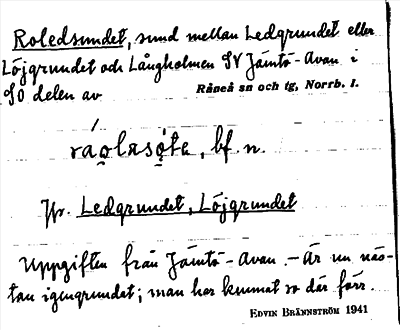 Roledsundet, sund mellan Ledgrundet eller
Löjgrundet och Långholmen SV Jämtö-Avan i
SO delen av Råneå sn och tg, Norrb. l.
bf. n.
Jfr. Ledgrundet, Löjgrundet
Uppgiften från Jämtö-Avan. - Är nu näs-
tan igengrundat; man har kunnat ro där förr.
EDVIN BRÄNNSTRÖM 1941